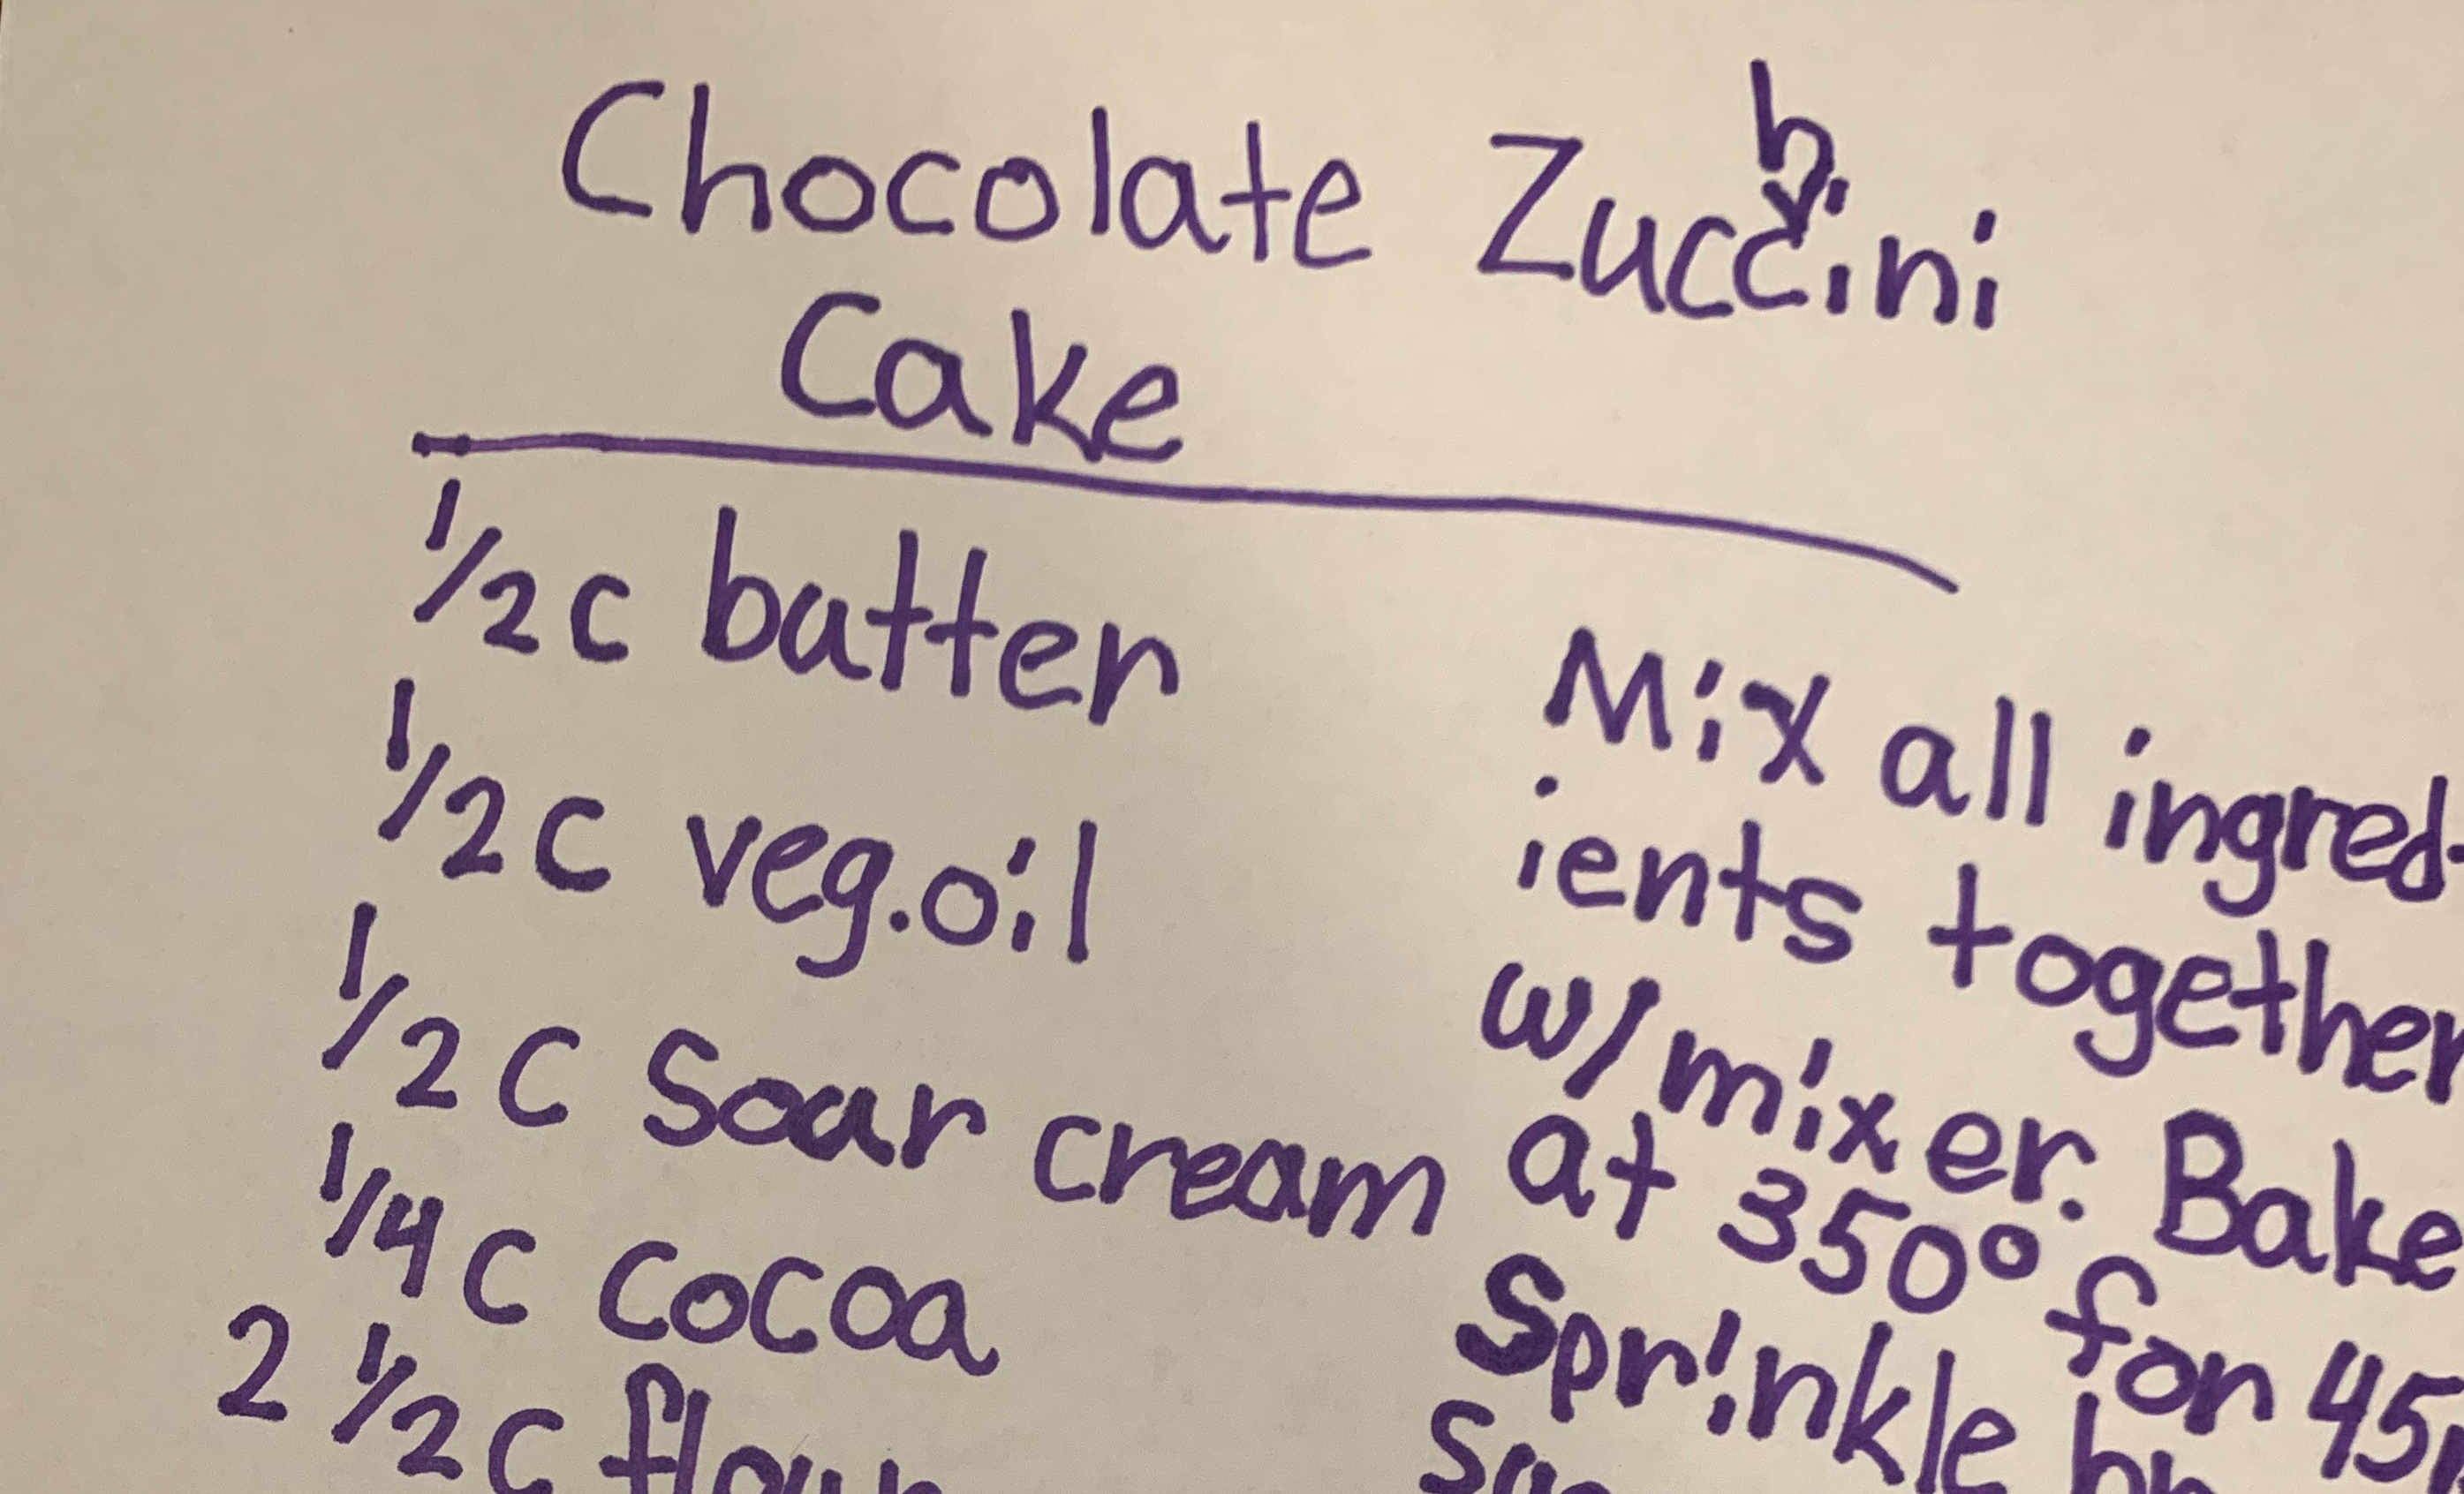 Chocolate Zucchini
Cake
1/2 c batter
1/2 c veg.oil
1/2 c Soar cream
1/4 c cocoa
2 1/2 c flour
Mix all ingred-
ients together
w/mixer. Bake
at 350° for 45
Sprinkle